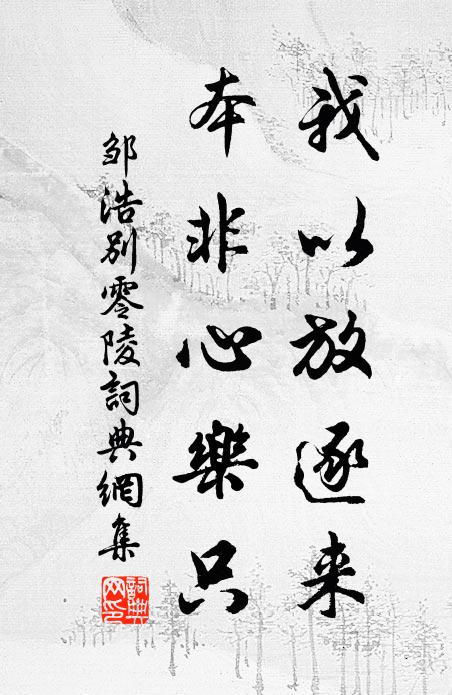 我以放逐来
本非心樂只
邹浩别零陵詞典網集
詞典網印